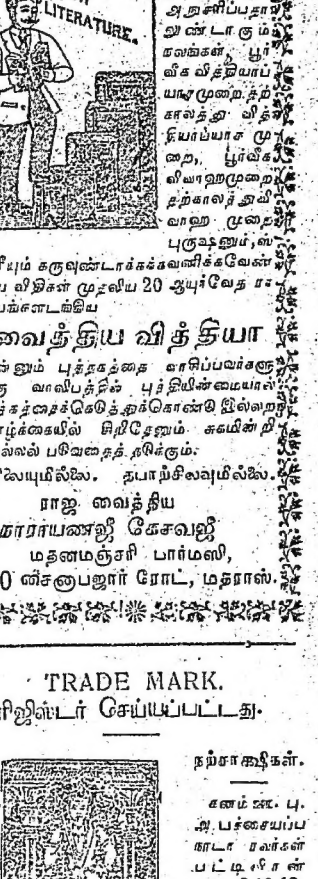 LITERATURE.
அநுசரிப்பதா
லுண்டாகும்
நலங்கள், பூர்
வீக வித்தியாப்
யாசமுறை தற்
காலத்து வித்
தியாப்யாச மு
றை, பூர்வீக
விவாஹமுறை
தற்காலத்துவி
வாஹ முறை
புருஷனும், ஸ்
ரீயும் கருவுண்டாக்கக்கவனிக்கவேண்
ய விதிகள் முதலிய 20 ஆயுர்வேத
ங்களடங்கிய
வைத்திய வித்தியா
ன்னும் புத்தகத்தை வாசிப்பவர்களு
வாலிபத்தில் புத்தியின்மையால்
க்கத்தைக்கெடுத்துக்கொண்டு இல்லற
ழ்க்கையில் சிறிதேனும் சுகமின்றி
ல்லல் படுவதைத் தடுக்கும்.
லையுமில்லை. தபாற்சிலவுமில்லை.
ராஜ வைத்திய
நாராயணஜீ கேசவஜீ
மதனமஞ்சரி பார்மஸி,
0 சைனாபஜார் ரோட், மதராஸ்.
TRADE MARK.
ரிஜிஸ்டர் செய்யப்பட்டது.
நற்சாக்ஷிகள்.
கனம் பு.
அ. பச்சையப்ப
நாடா ரவர்கள்